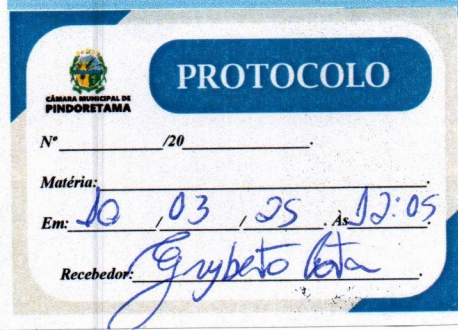 CÂMARA MUNICIPAL DE
PINDORETAMA
PROTOCOLO
Nº ____________/20________________.
Matéria:________________________________.
Em: 10 / 03 / 25 . Às 12:05
Recebedor: Costa